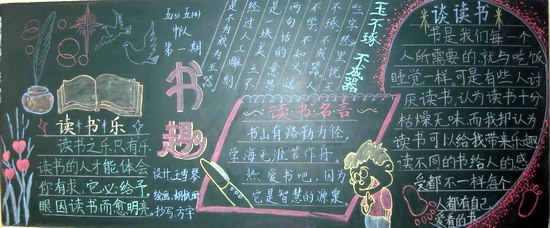 读书乐
读书之乐只有乐
读书的人才能体会
你有求,它必给予,
眼因读书而愈明亮。
五(3) 五(4)
中队
第一期
书趣
设计:王雪琴
绘画:胡
书写:方宇
玉不琢 不成器
三字经里说
不学,不成器人
两句话的意思
是一块美玉不
经过人工雕刻
是不为成为玉器
读书名言
书山有路勤为径,
学海无涯苦作舟。
热爱书吧,因为
它是智慧的源泉。
谈读书
书是我们每一个
人所需要的,就与吃饭
睡觉一样。可是有些人讨
厌读书,认为读书十分
枯燥无味,而我却认为
读书可以给我带来乐趣
读不同的书给人的感
受都不一样,每个
人都有自己
爱看的书